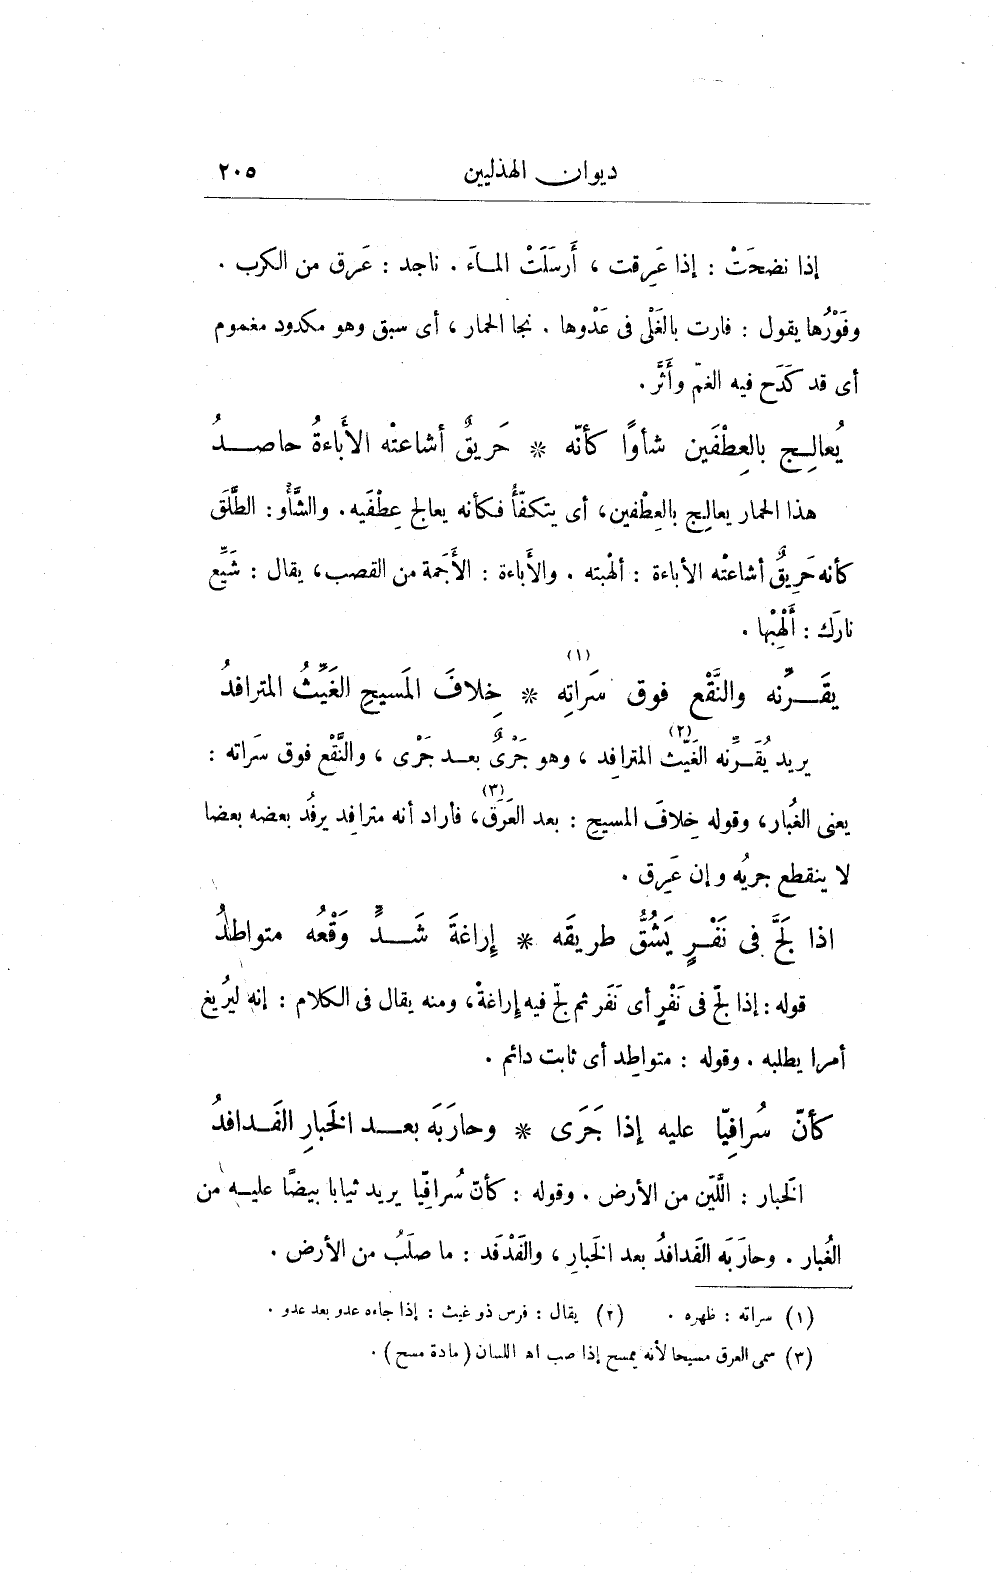 ديوان الهذليين ٢٠٥
إذا نضحَتْ : إذا عَرِقت ، أَرسَلَتْ المـاءَ . ناجد : عَرق من الكرب .
وفَوْرُها يقول : فارت بالغَلْى فى عَدْوها . نجا الحمار ، أى سبق وهو مكدود مغموم
أى قد كَدَح فيه الغمّ وأَثَّر .
يُعالِـج بالعِطْفَين شأوًا كأنّه * حَريقٌ أشاعتْه الأَباءةُ حاصـــدُ
هذا الحمار يعالِج بالعِطْفين، أى يتكفّأُ فكأنه يعالج عِطْفَيه. والشَّأْو: الطَّلَق
كأنه حَرِيقٌ أشاعتْه الأباءة : ألهبته . والأَباءة : الأَجَمة من القصب، يقال : شَيِّع
نارَك : أَلْهِبْها .
يقَـــرِّنه والنَّقْع فوق سَراتِه (١) * خِلافَ المَسيحِ الغَيِّثُ المترافدُ
يريد يُقَـــرِّنه الغَيِّث (٢) المترافِد ، وهو جَرْىٌ بعـد جَرْى ، والنَّقْع فوق سَراته :
يعنى الغُبار، وقوله خِلافَ المسيحِ : بعد العَرَق (٣)، فأراد أنه مترافِد يرفُد بعضه بعضا
لا ينقطع جريُه وإن عَرِق .
اذا لَجَّ فى نَفْرٍ يَشُقُّ طريقَه * إراغةَ شَـــدٍّ وَقْعُه متواطدُ
قوله : إذا لجّ فى نَفْرٍ أى نَفَر ثم لجّ فيه إراغةً، ومنه يقال فى الكلام : إنه ليُرِيغ
أمرا يطلبه . وقوله : متواطِد أى ثابت دائم .
كأنّ سُرافِيّا عليه إذا جَرَى * وحارَبَه بعـــد الخَبارِ الفَـدافدُ
الخَبار : اللَّيّن من الأرض . وقوله : كأنّ سُرافِيّا يريد ثيابا بيضًا عليـه من
الغُبار . وحارَبَه الفَدافدُ بعد الخَبارِ ، والفَدْفَد : ما صلُبَ من الأرض .
(١) سراته : ظهره . (٢) يقال : فرس ذو غيث : إذا جاءه عدو بعد عدو .
(٣) سمى العرق مسيحا لأنه يمسح إذا صب اه اللسان ( مادة مسح ) .